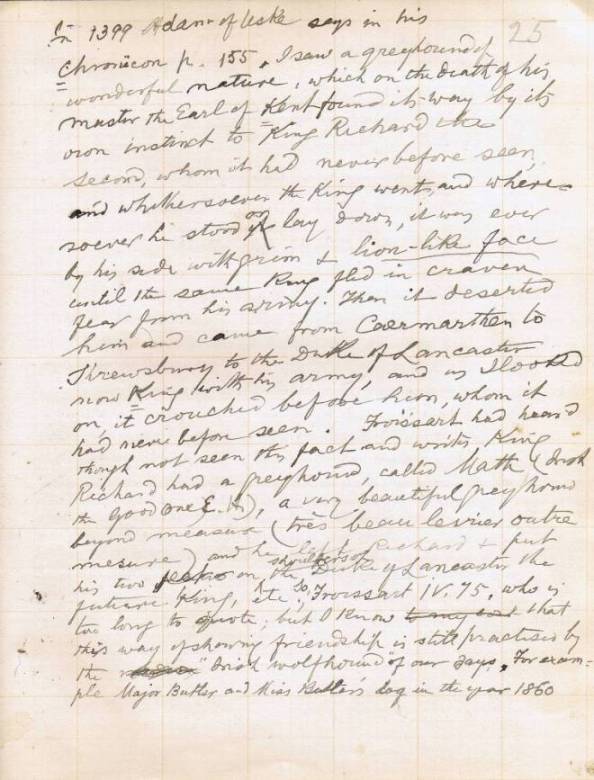 In 1399 Adam of Uske says in his 25
Chronicon p. 155 "I saw a greyhound of
wonderful nature, which on the death of his
master the Earl of Kent found its way by its
own instinct to King Richard the
second, whom it had never before seen,
and whithersoever the King went, and where-
soever he stood or lay down, it was ever
by his side with grim & lion-like face
until the same King fled in craven
fear from his army. Then it deserted
him and came from Caermarthen to
Shrewsbury to the Duke of Lancaster
now King with his army, and as I looked
on, it crouched before him, whom it
had never before seen. Froissart had heard
though not seen this fact and writes King
Richard had a greyhound, called Math (Irish
the good one E. H.), a very beautiful greyhound
beyond measure (très beau levrier outre
mesure) and he left Richard & put
his two feet on the shoulders of Duke of Lancaster the
future King, etc, Froissart IV. 75, who is
too long to quote; but I know to my cost that
this way of showing friendship is still practised by
the Irish wolfhound of our days, For exam-
ple Major Butler and Miss Butler's dog in the year 1860